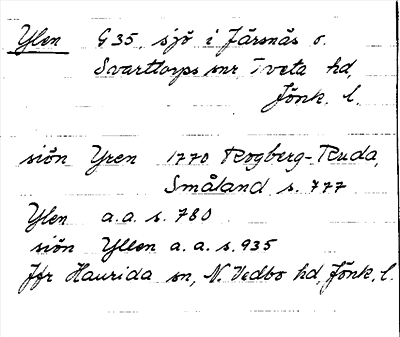 Ylen G35. sjö i Järsnäs o.
Svarttorps snr Tveta hd,
Jönk. l.
siön Yren 1770 Rogberg-Ruda,
Småland s. 777
Ylen a.a. s. 780
siön Yllen a. a. s. 935
Jfr Haurida sn, N. Vedbo hd, Jönk. l.